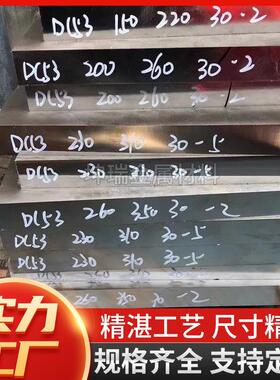 DC53 150 220 30-2
DC53 200 260 30-2
DC53 200 260 30-2
DC53 210 310 30-5
坤瑞金属材料
DC53 230 310 30-5
DC53 260 350 30-2
DC53 230 310 30-5
DC53 230 310 30-5
260 30-2
实力
工厂
精湛工艺 尺寸精
规格齐全 支持定